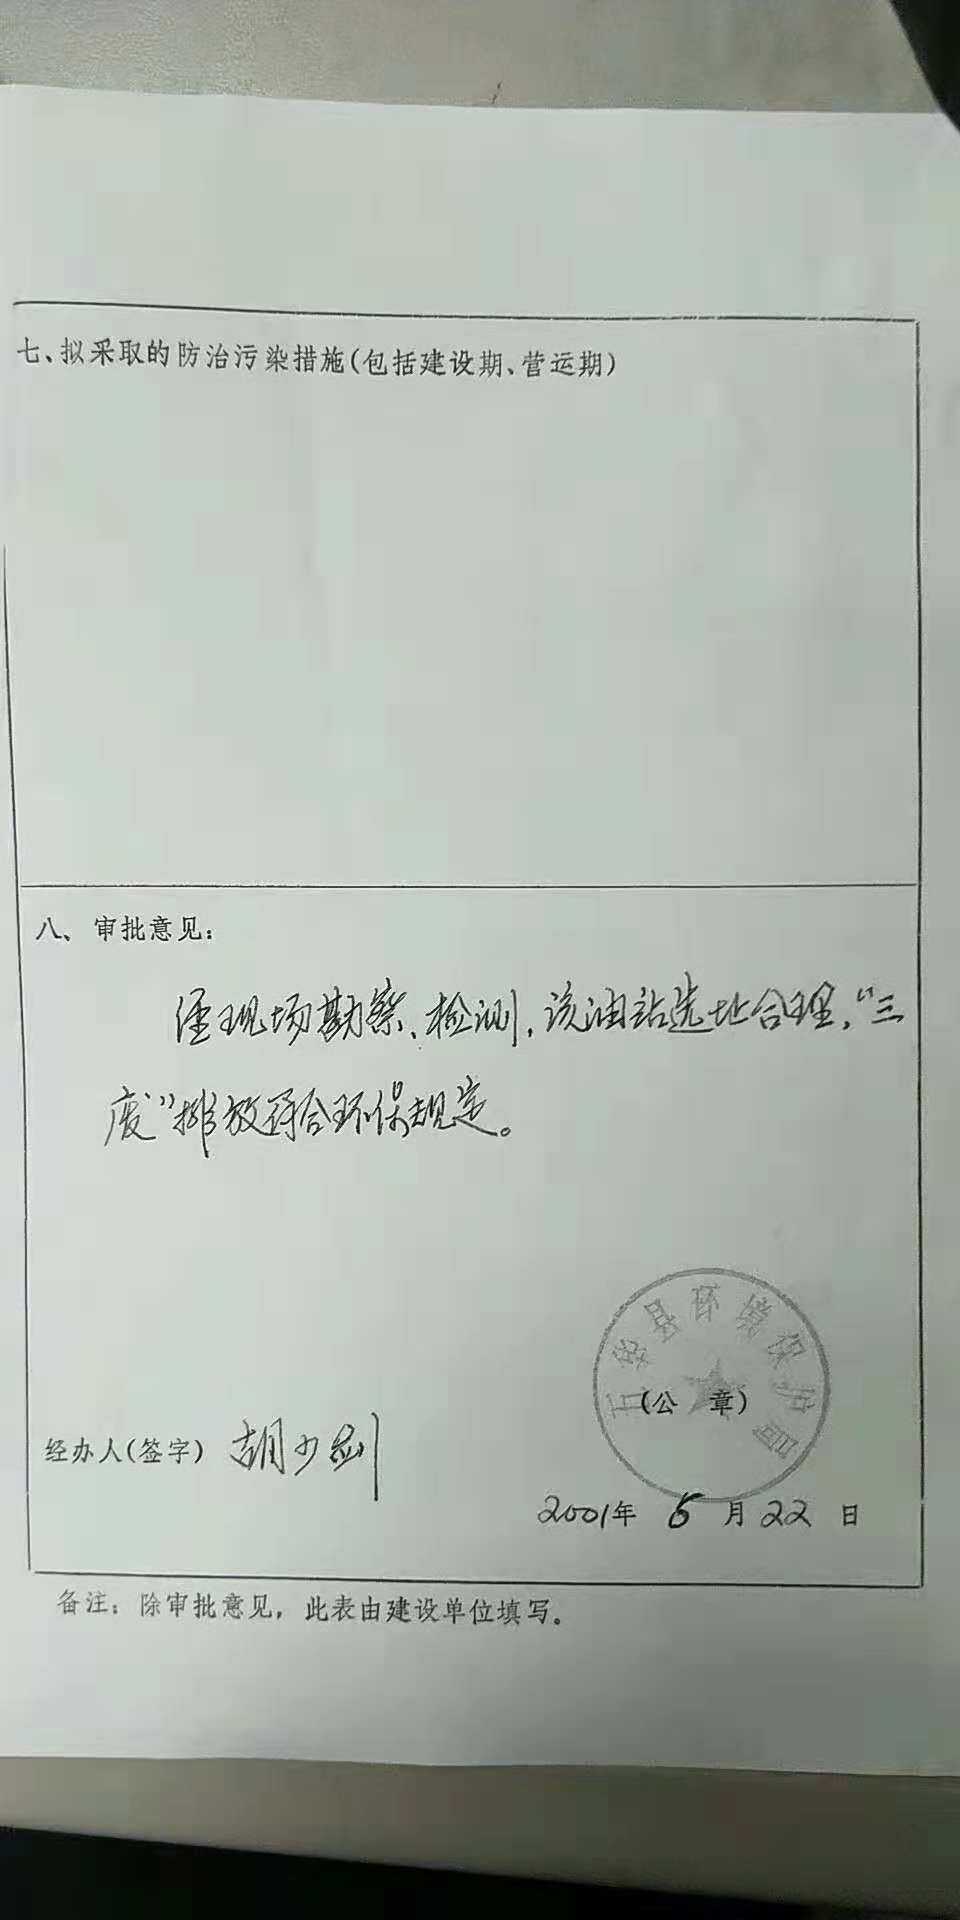 七、拟采取的防治污染措施(包括建设期、营运期)
八、审批意见：
经现场勘察、检测，该油站选址合理，“三
废”排放符合环保规定。
县环境保护局
(公 章)
经办人(签字) 胡少剑
2001年 5月22日
备注：除审批意见，此表由建设单位填写。